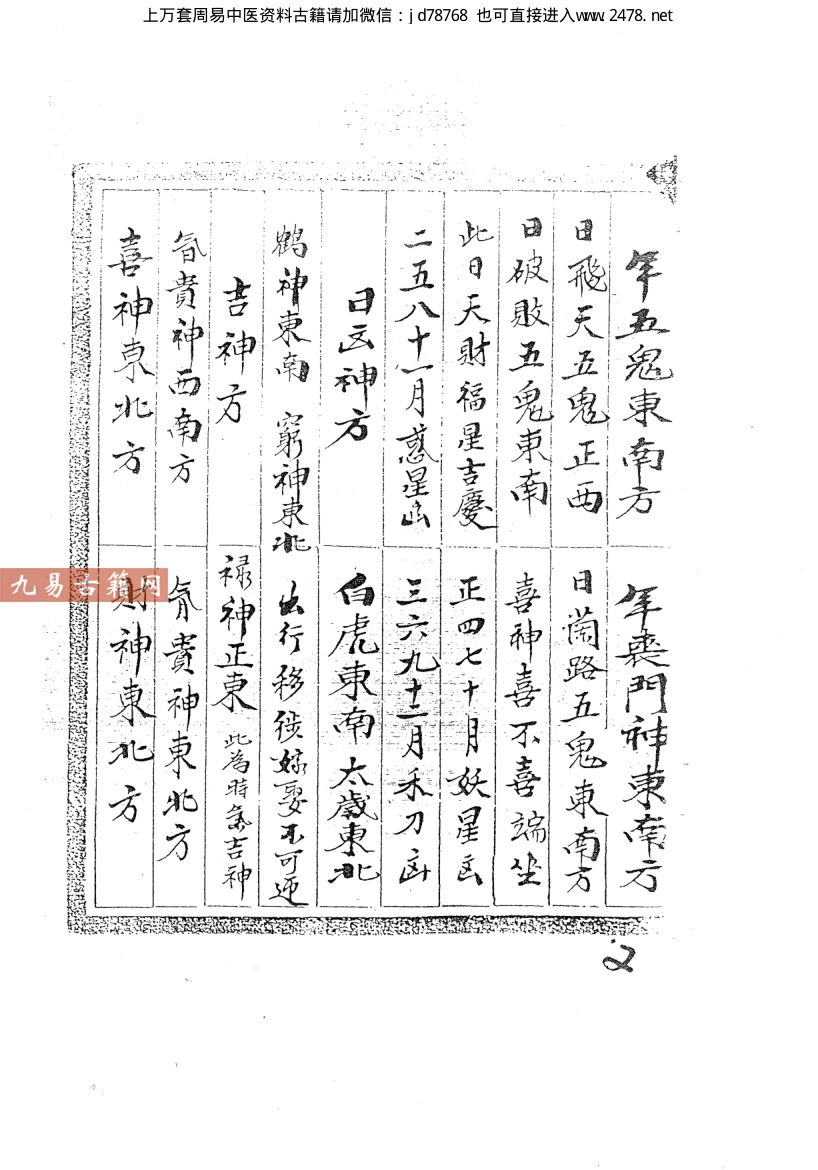 上万套周易中医资料古籍请加微信：jd78768 也可直接进入www.2478.net
年五鬼東南方 年喪門神東南方
日飛天五鬼正西 日蘭路五鬼東南方
日破敗五鬼東南 喜神喜不喜端坐
此日天財福星吉慶 正四七十月妖星凶
二五八十一月惑星凶 三六九十二月禾刀凶
日凶神方 白虎東南太歲東北
鶴神東南 窮神東北 出行移徙嫁娶不可迎
吉神方 祿神正東 此為時家吉神
貴神西南方 貴神東北方
喜神東北方 財神東北方
九易古籍网
2